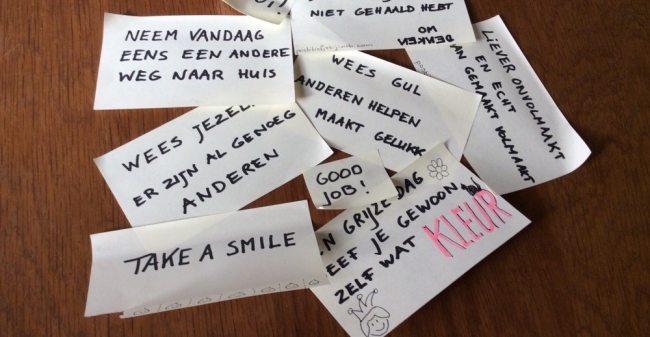 NIET GEHAALD HEBT
OM
DENKEN
NEEM VANDAAG
EENS EEN ANDERE
WEG NAAR HUIS
WEES GUL
ANDEREN HELPEN
MAAKT
LIEVER ONVOLMAAKT
EN ECHT
GEMAAKT VOLMAAKT
WEES
ER ZIJN AL GENOEG
ANDEREN
GOOD
JOB!
TAKE A SMILE
GRIJZE DAG
JE GEWOON
ZELF WAT KLEUR